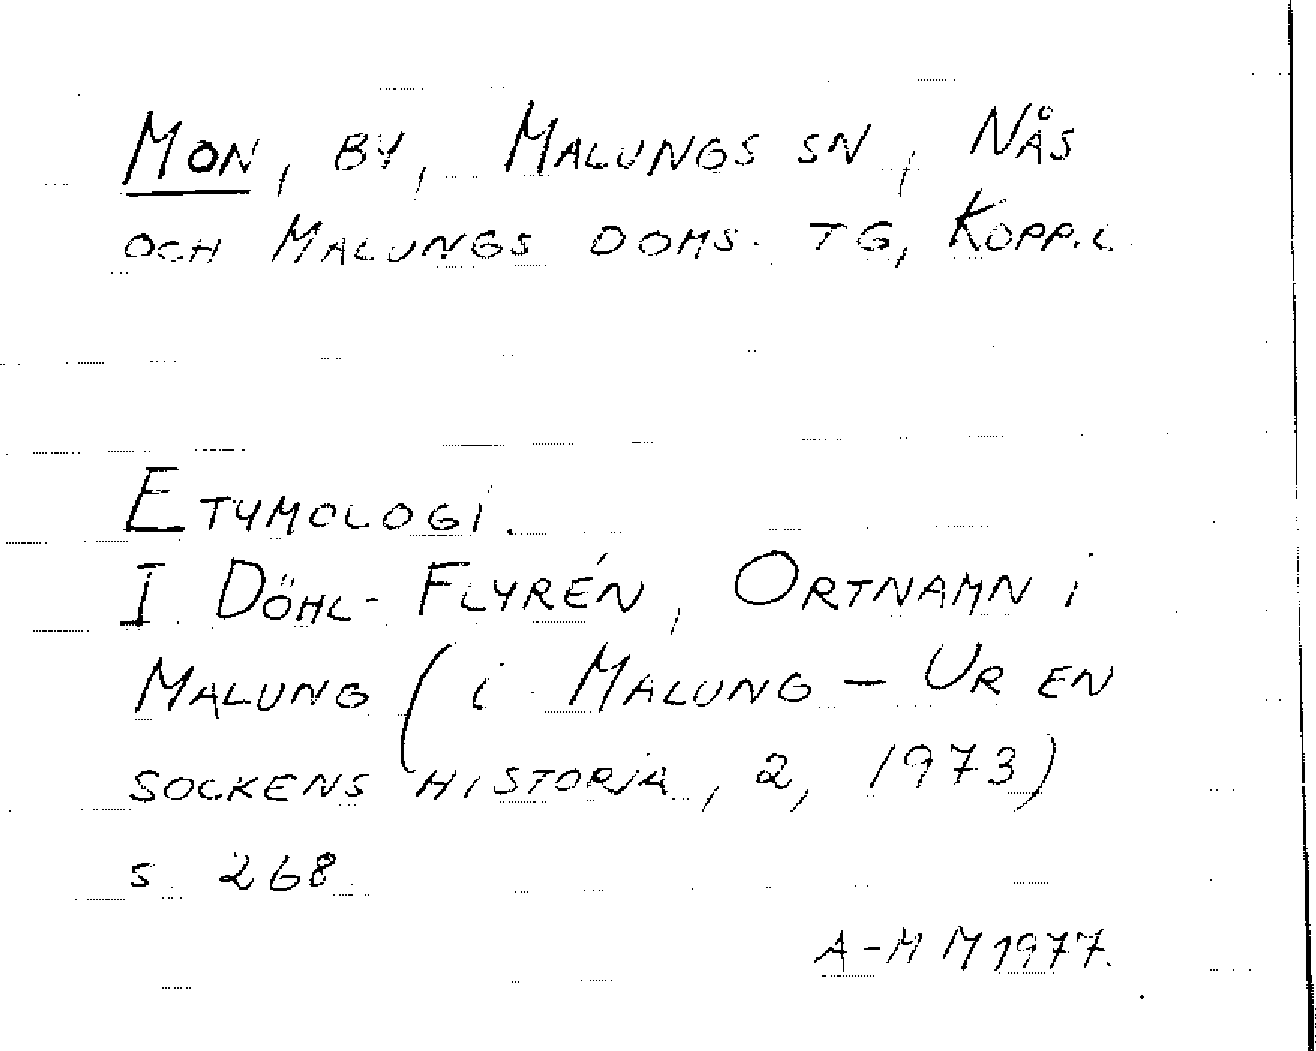 MON, BY, MALUNGS SN, NÅS
OCH MALUNGS DOMS. TG, KOPP.L
ETYMOLOGI.
I DÖHL-FLYRÉN, ORTNAMN i
MALUNG (i MALUNG – UR EN
SOCKENS HISTORIA, 2, 1973)
S. 268
A-M M 1977.